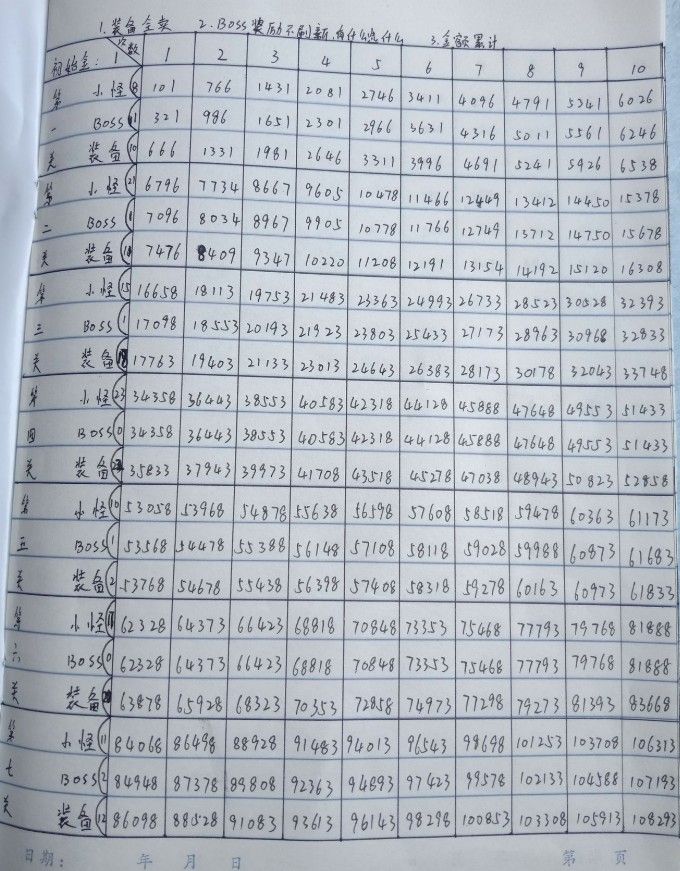 1.装备全卖 2.BOSS奖励不刷新,有什么卖什么 3.金额累计
次数
初始金:1 1 2 3 4 5 6 7 8 9 10
第 小怪⑧ 101 766 1431 2081 2746 3411 4096 4791 5341 6026
一 BOSS 321 986 1651 2301 2966 3631 4316 5011 5561 6246
关 装备⑩ 666 1331 1981 2646 3311 3996 4691 5241 5926 6538
第 小怪㉑ 6796 7734 8667 9605 10478 11466 12449 13412 14450 15378
二 BOSS 7096 8034 8967 9905 10778 11766 12749 13712 14750 15678
关 装备 7476 8409 9347 10220 11208 12191 13154 14192 15120 16308
第 小怪⑮ 16658 18113 19753 21483 23363 24993 26733 28523 30528 32393
三 BOSS① 17098 18553 20193 21923 23803 25433 27173 28963 30968 32833
关 装备 17763 19403 21133 23013 24643 26383 28173 30178 32043 33748
第 小怪㉓ 34358 36443 38553 40583 42318 44128 45888 47648 49553 51433
四 BOSS⓪ 34358 36443 38553 40583 42318 44128 45888 47648 49553 51433
关 装备 35833 37943 39973 41708 43518 45278 47038 48943 50823 52858
第 小怪⑩ 53058 53968 54878 55638 56598 57608 58518 59478 60363 61173
五 BOSS① 53568 54478 55388 56148 57108 58118 59028 59988 60873 61683
关 装备② 53768 54678 55438 56398 57408 58318 59278 60163 60973 61833
第 小怪 62328 64373 66423 68818 70848 73353 75468 77793 79768 81888
六 BOSS⓪ 62328 64373 66423 68818 70848 73353 75468 77793 79768 81888
关 装备 63878 65928 68323 70353 72858 74973 77298 79273 81393 83668
第 小怪⑪ 84068 86498 88928 91483 94013 96543 98698 101253 103708 106313
七 BOSS② 84948 87378 89808 92363 94893 97423 99578 102133 104588 107193
关 装备⑫ 86098 88528 91083 93613 96143 98298 100853 103308 105913 108293
日期: 年 月 日 第 页